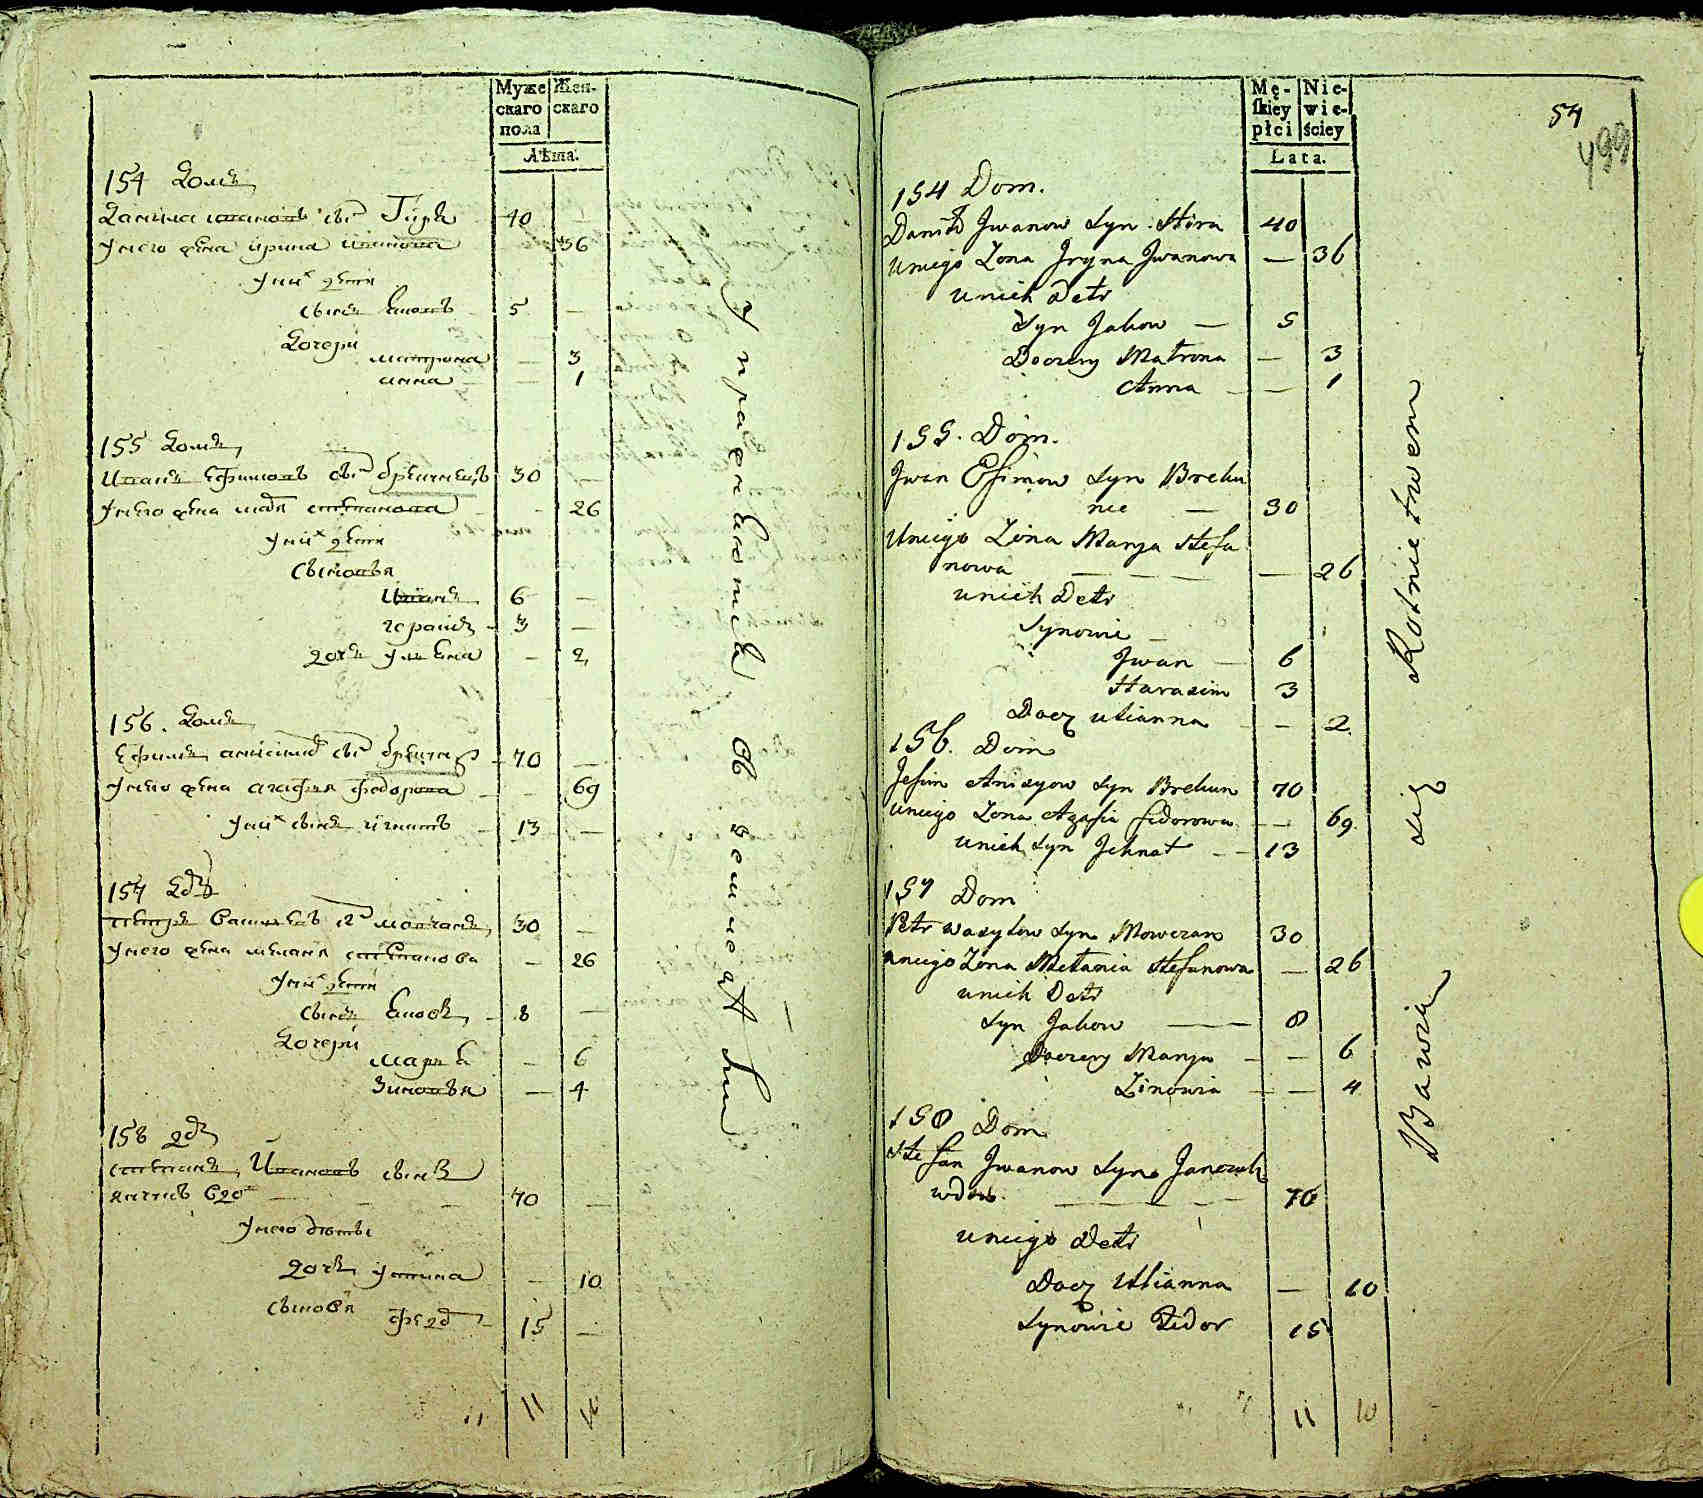 Муже
скаго
пола
Жен-
скаго
Лѣта.
154 домъ
Данила Ивановъ сы̃ Гира 40 —
у него жена Ирина Иванова 36
у них дети
сынъ Яковъ 5 —
дочери
Матрона — 3
Анна — 1
155 домъ
Иванъ Ефимовъ сы̃ 30 —
у него жена Марья Степанова — 26
у них дети
сыновья
Иванъ 6 —
3 —
дочь Ульяна — 2
156. домъ
Ефимъ сы̃ 70 —
у него жена Агафия Федорова — 69
у них сынъ Игнатъ 13 —
157 до
Петръ Василевъ сы̃ Мовчанъ 30 —
у него жена Мелания Степанова — 26
у них дети
сынъ Яковъ 8 —
дочери
Марья — 6
Зиновья — 4
158 до
Степанъ Ивановъ сынъ
70 —
у него дети
дочь Устина — 10
сыновья Федо 15 —
11 11 10
Упражняются
в земледелии
Mę-
skiey
płci
Nie-
wie-
ściey
Lata.
54
499
154 Dom.
Daniło Jwanow Syn Hira 40
Uniego Zona Jryna Jwanowa — 36
unich Deti
Syn Jakow — 5
Doczery Matrona — 3
Anna — 1
155. Dom.
Jwan Efimow Syn Brehu
nec — 30
Uniego Zona Marya Stefa
nowa — 26
unich Deti
Synowie —
Jwan — 6
Harasim 3
Docz Ulianna — 2
156. Dom
Jefim Anisyow Syn Brehun 70
uniego Zona Agafia Fidorowa — 69
unich Syn Jehnat — 13
157 Dom
Petr Wasylow Syn Mowczan 30
uniego Zona Mełania Stefanowa — 26
unich Deti
Syn Jakow — 8
Doczery Marya — 6
Zinowia — 4
158 Dom
Stefan Jwanow Syn
wdow. — 70
uniego Deti
Docz Ulianna — 10
Synowie Fidor 15
11 10
Bawią się Rolnictwem